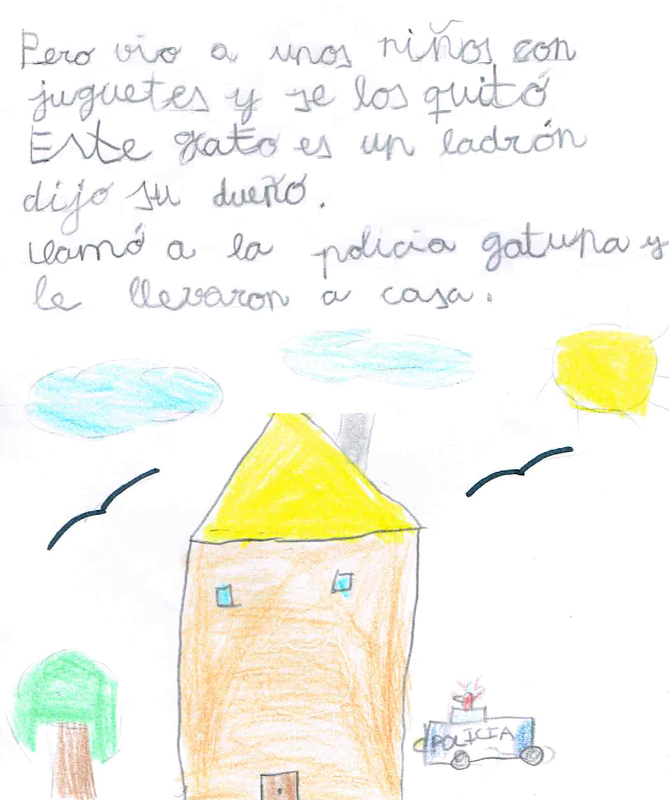 Pero vio a unos niños con
juguetes y se los quitó
Este gato es un ladrón
dijo su dueño.
llamó a la policia gatuna y
le llevaron a casa.
POLICIA